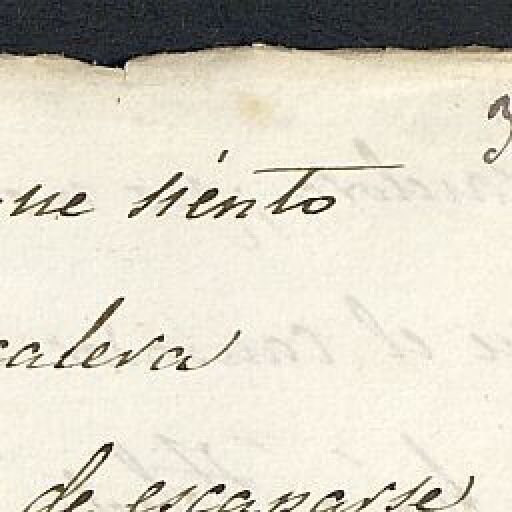 3
ue siento
calera
de escaparse